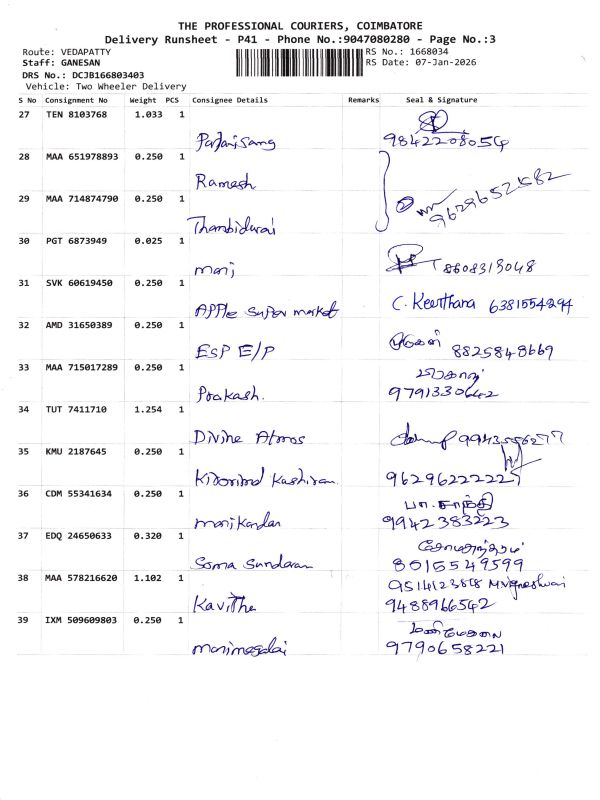 THE PROFESSIONAL COURIERS, COIMBATORE
Delivery Runsheet - P41 - Phone No.:9047080280 - Page No.:3
Route: VEDAPATTY RS No.: 1668034
Staff: GANESAN RS Date: 07-Jan-2026
DRS No.: DCJB166803403
Vehicle: Two Wheeler Delivery
S No Consignment No Weight PCS Consignee Details Remarks Seal & Signature
27 TEN 8103768 1.033 1
9842208054
28 MAA 651978893 0.250 1
Ramesh
9629652582
29 MAA 714874790 0.250 1
Thambidurai
30 PGT 6873949 0.025 1
Mani 8608313048
31 SVK 60619450 0.250 1
APPle Super market C. Keerthana 6381554294
32 AMD 31650389 0.250 1
ESP E/P 8825848669
33 MAA 715017289 0.250 1
Prakash. 9791330642
34 TUT 7411710 1.254 1
Divine Atmos 9943556277
35 KMU 2187645 0.250 1
9629622222
36 CDM 55341634 0.250 1
பா. சாந்தி
manikandan 9942383223
37 EDQ 24650633 0.320 1
சோமசுந்தரம்
Soma Sundaran 8015549599
38 MAA 578216620 1.102 1
M.Vigneshwari
Kavitha 9488966542
39 IXM 509609803 0.250 1
மணிமேகலை
manimegalai 9790658221